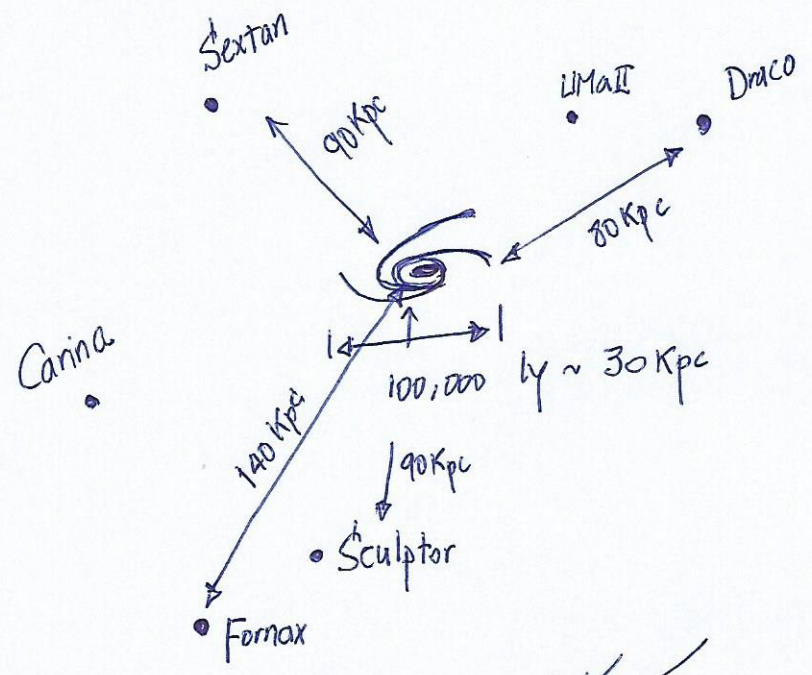 Sextan
UMaII
Draco
90Kpc
80Kpc
Carina
100,000 ly ~ 30Kpc
140Kpc
90Kpc
Sculptor
Fornax